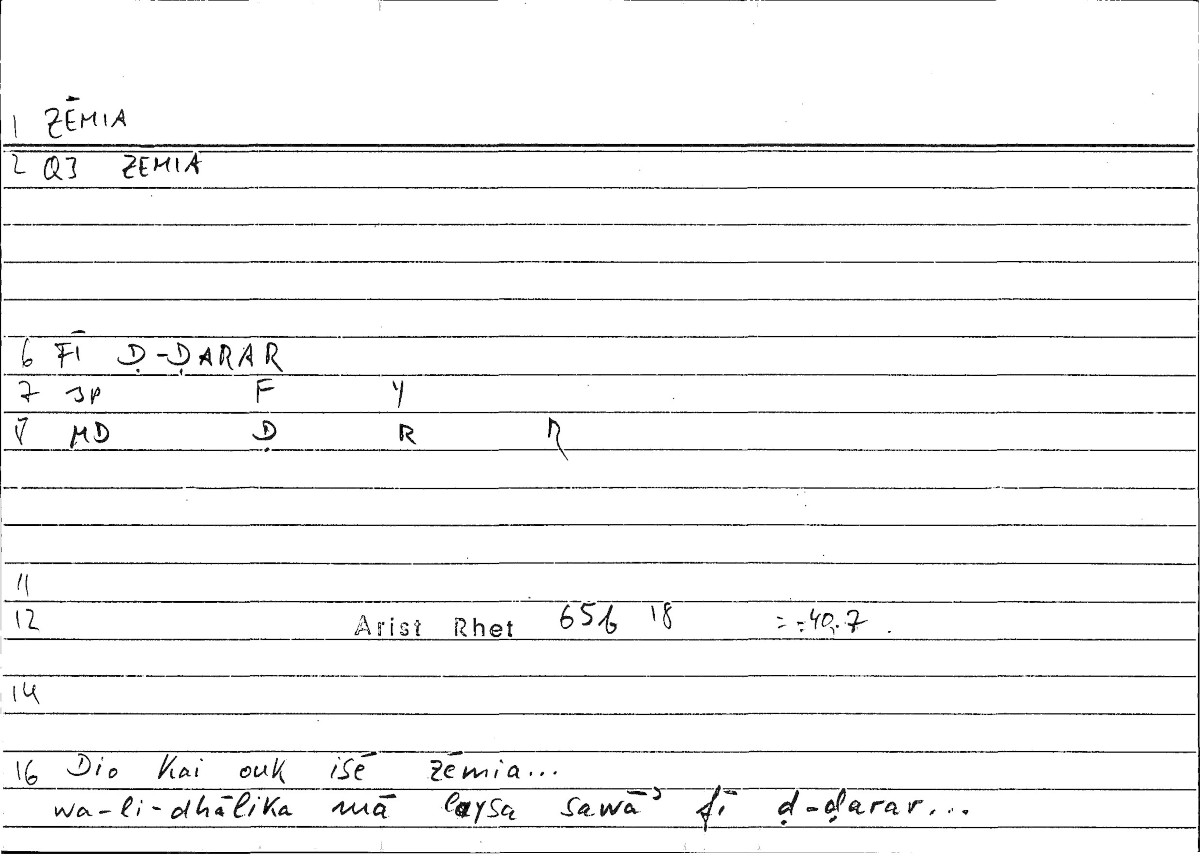 1 ZĒMIA
2 Q3 ZEMIA
6 FĪ Ḍ-ḌARAR
7 3P F Y
8 MD Ḍ R R
11
12 Arist Rhet 65b 18 = 40.7
14
16 Dio kai ouk isē zēmia...
wa-li-dhālika mā laysa sawāʾ fī ḍ-ḍarar...